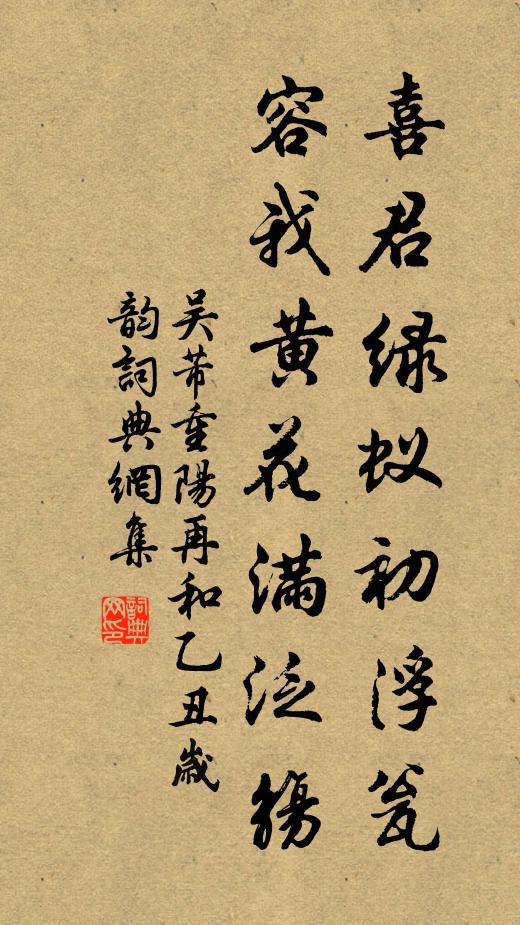 喜君绿蚁初浮瓮
容我黄花满泛觞
吴芾重陽再和乙丑歲
韵詞典網集
詞典网印